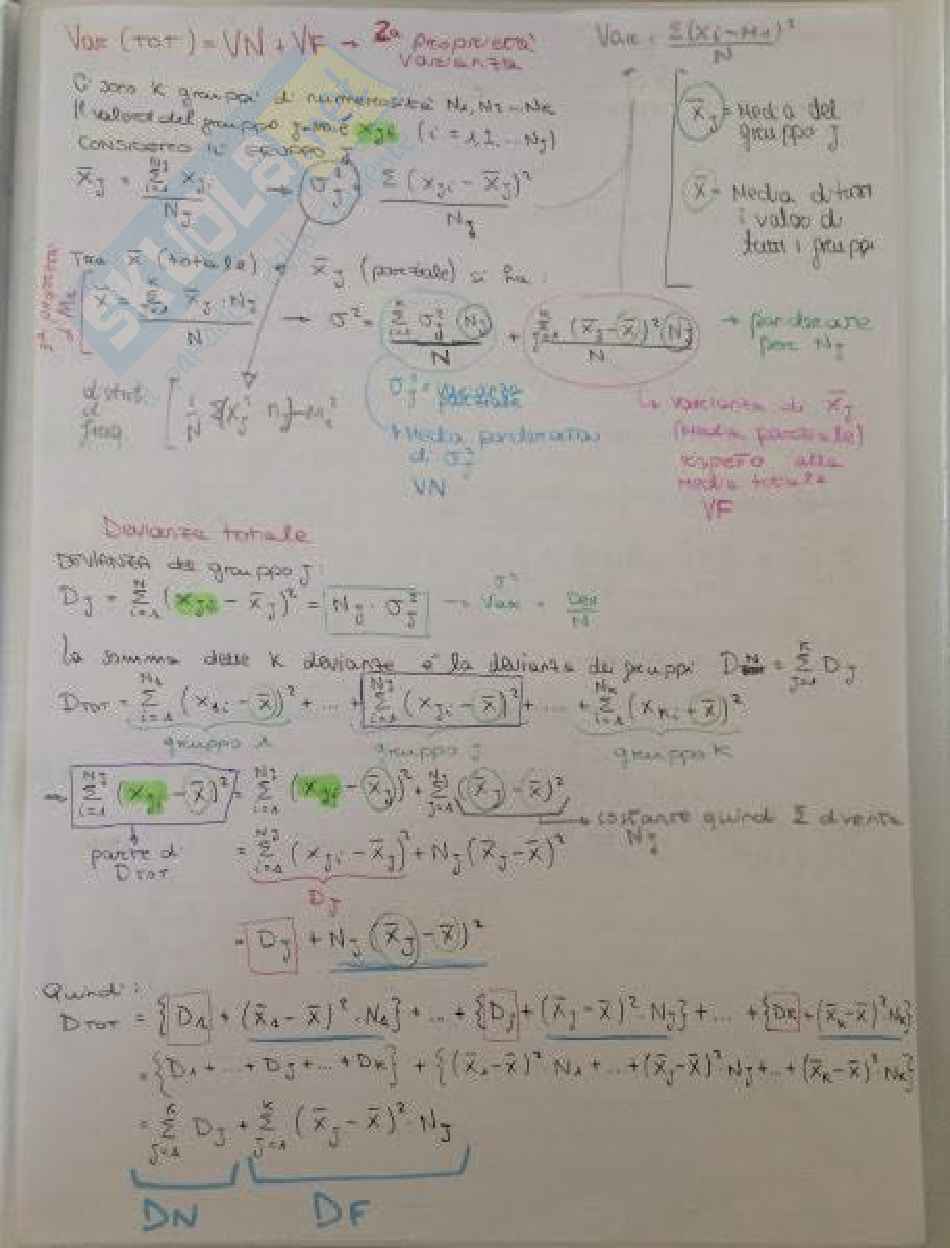 Var (TOT) = VN + VF → 2ª proprietà varianza
Var = Σ(xi - M1)² / N
Ci sono K gruppi di numerosità N1, N2 - NK
Il valore del gruppo j-mo è xji (i = 1, 2, ... Nj)
CONSIDERO IL GRUPPO J
x̄j = Σ(i=1→Nj) xji / Nj → σj² = Σ(xji - x̄j)² / Nj
x̄j = Media del
gruppo j
x̄ = Media di tutti
i valori di
tutti i gruppi
Tra x̄ (totale) e x̄j (parziale) si ha:
x̄ = Σ x̄j · Nj / N → σ² = Σ σj² Nj / N + Σ (x̄j - x̄)² Nj / N → ponderare
per Nj
distrib.
di
freq
σj² = varianza
parziale
Media ponderata
di σj²
VN
↳ varianza di x̄j
(media parziale)
rispetto alla
media totale
VF
Devianza totale
DEVIANZA del gruppo j:
Dj = Σ(i=1→N) (xji - x̄j)² = Nj · σj² → σ² Var = Dev / N
La somma delle K devianze è la devianza dei gruppi DN = Σ(j=1→K) Dj
DTOT = Σ(i=1→N1) (x1i - x̄)² + ... + Σ(i=1→Nj) (xji - x̄)² + ... + Σ(i=1→NK) (xKi + x̄)²
gruppo 1 gruppo j gruppo K
→ Σ(i=1→Nj) (xji - x̄)² = Σ(i=1→Nj) (xji - x̄j)² + Σ(j=1→Nj) (x̄j - x̄)²
→ costante quindi Σ diventa
Nj
parte di
DTOT
= Σ(i=1→Nj) (xji - x̄j)² + Nj (x̄j - x̄)²
Dj
= Dj + Nj (x̄j - x̄)²
Quindi:
DTOT = {D1 + (x̄1 - x̄)² · N1} + ... + {Dj + (x̄j - x̄)² · Nj} + ... + {DK + (x̄K - x̄)² NK}
= {D1 + ... + Dj + ... + DK} + {(x̄1 - x̄)² · N1 + ... + (x̄j - x̄)² · Nj + ... + (x̄K - x̄)² · NK}
= Σ(j=1→K) Dj + Σ(j=1→K) (x̄j - x̄)² · Nj
DN DF